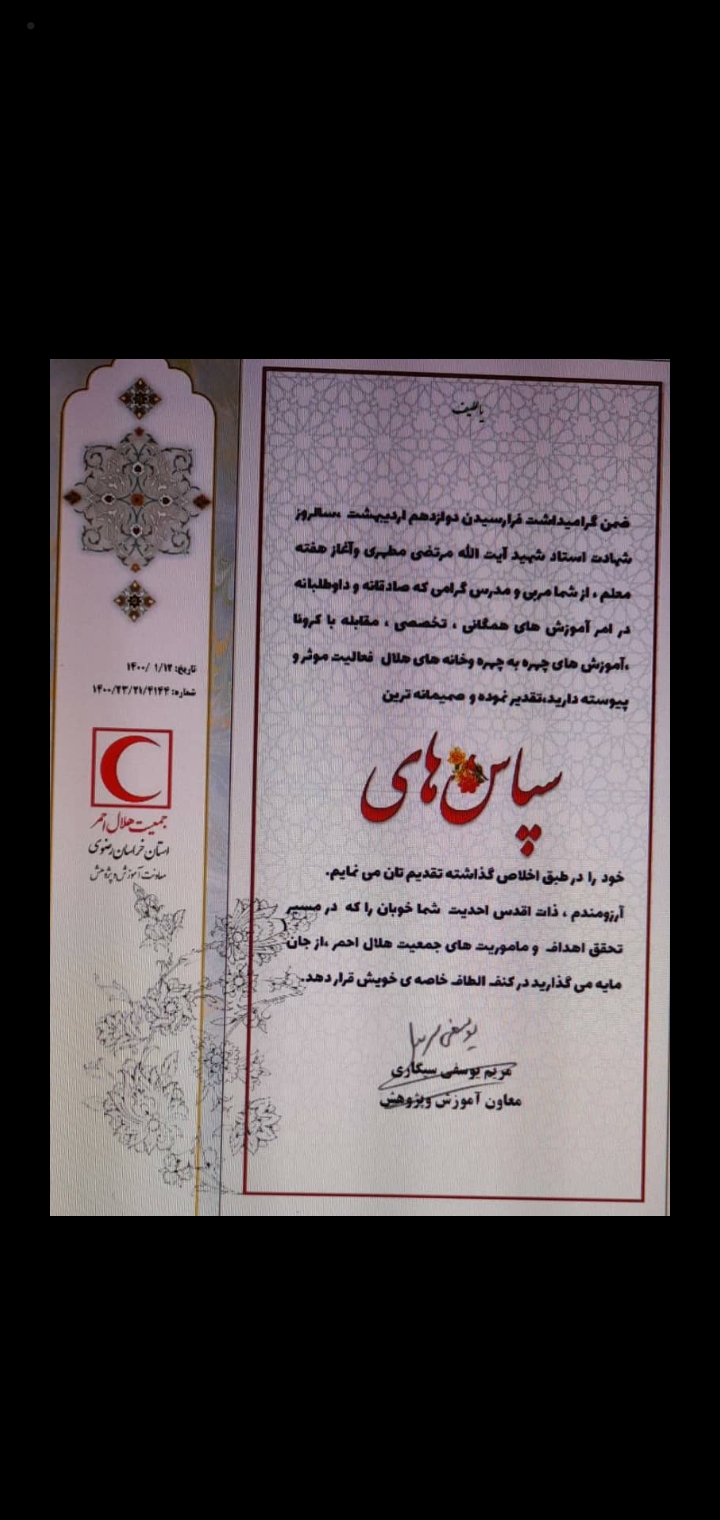 یا لطیف
ضمن گرامیداشت فرارسیدن دوازدهم اردیبهشت ،سالروز
شهادت استاد شهید آیت الله مرتضی مطهری وآغاز هفته
معلم ، از شما مربی و مدرس گرامی که صادقانه و داوطلبانه
در امر آموزش های همگانی ، تخصصی ، مقابله با کرونا
،آموزش های چهره به چهره وخانه های هلال فعالیت موثر و
پیوسته دارید،تقدیر نموده و صمیمانه ترین
سپاس های
خود را در طبق اخلاص گذاشته تقدیم تان می نمایم.
آرزومندم ، ذات اقدس احدیت شما خوبان را که در مسیر
تحقق اهداف و ماموریت های جمعیت هلال احمر ،از جان
مایه می گذارید در کنف الطاف خاصه ی خویش قرار دهد.
مریم یوسفی سیگاری
معاون آموزش وپژوهش
تاریخ: ۱/۱۲ /۱۴۰۰
شماره: ۱۴۰۰/۲۳/۲۱/۴۱۴۴
جمعیت هلال احمر
استان خراسان رضوی
معاونت آموزش و پژوهش